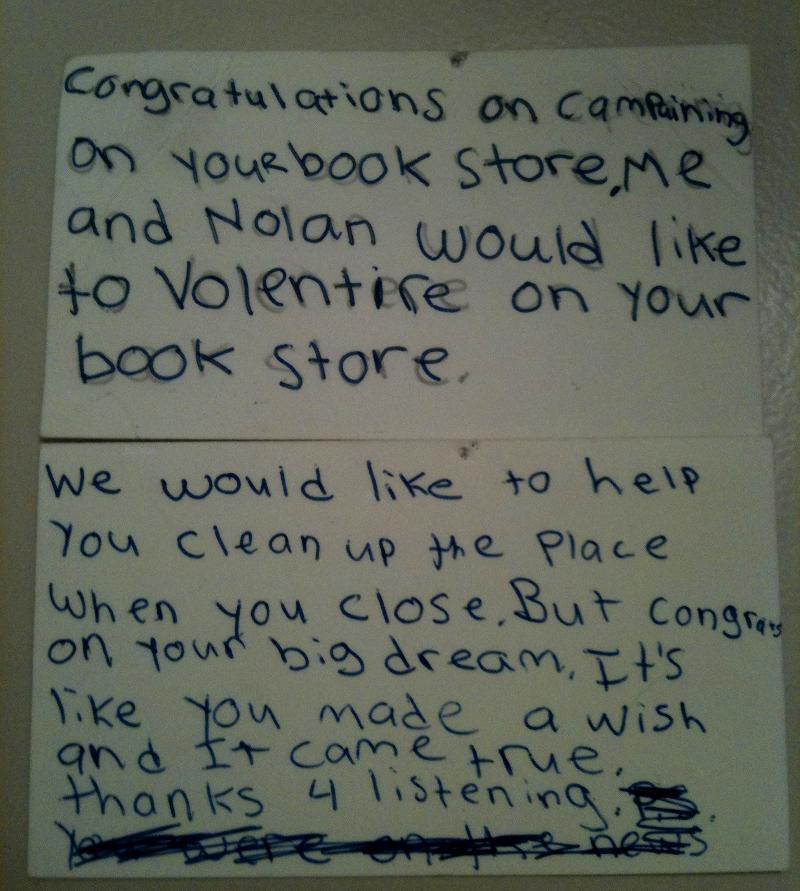 Congratulations on Campaining
on your book store, Me
and Nolan would like
to Volentire on your
book store.
We would like to help
you clean up the place
when you close. But congrats
on your big dream. It's
like you made a wish
and It came true.
thanks 4 listening.
You were on the news